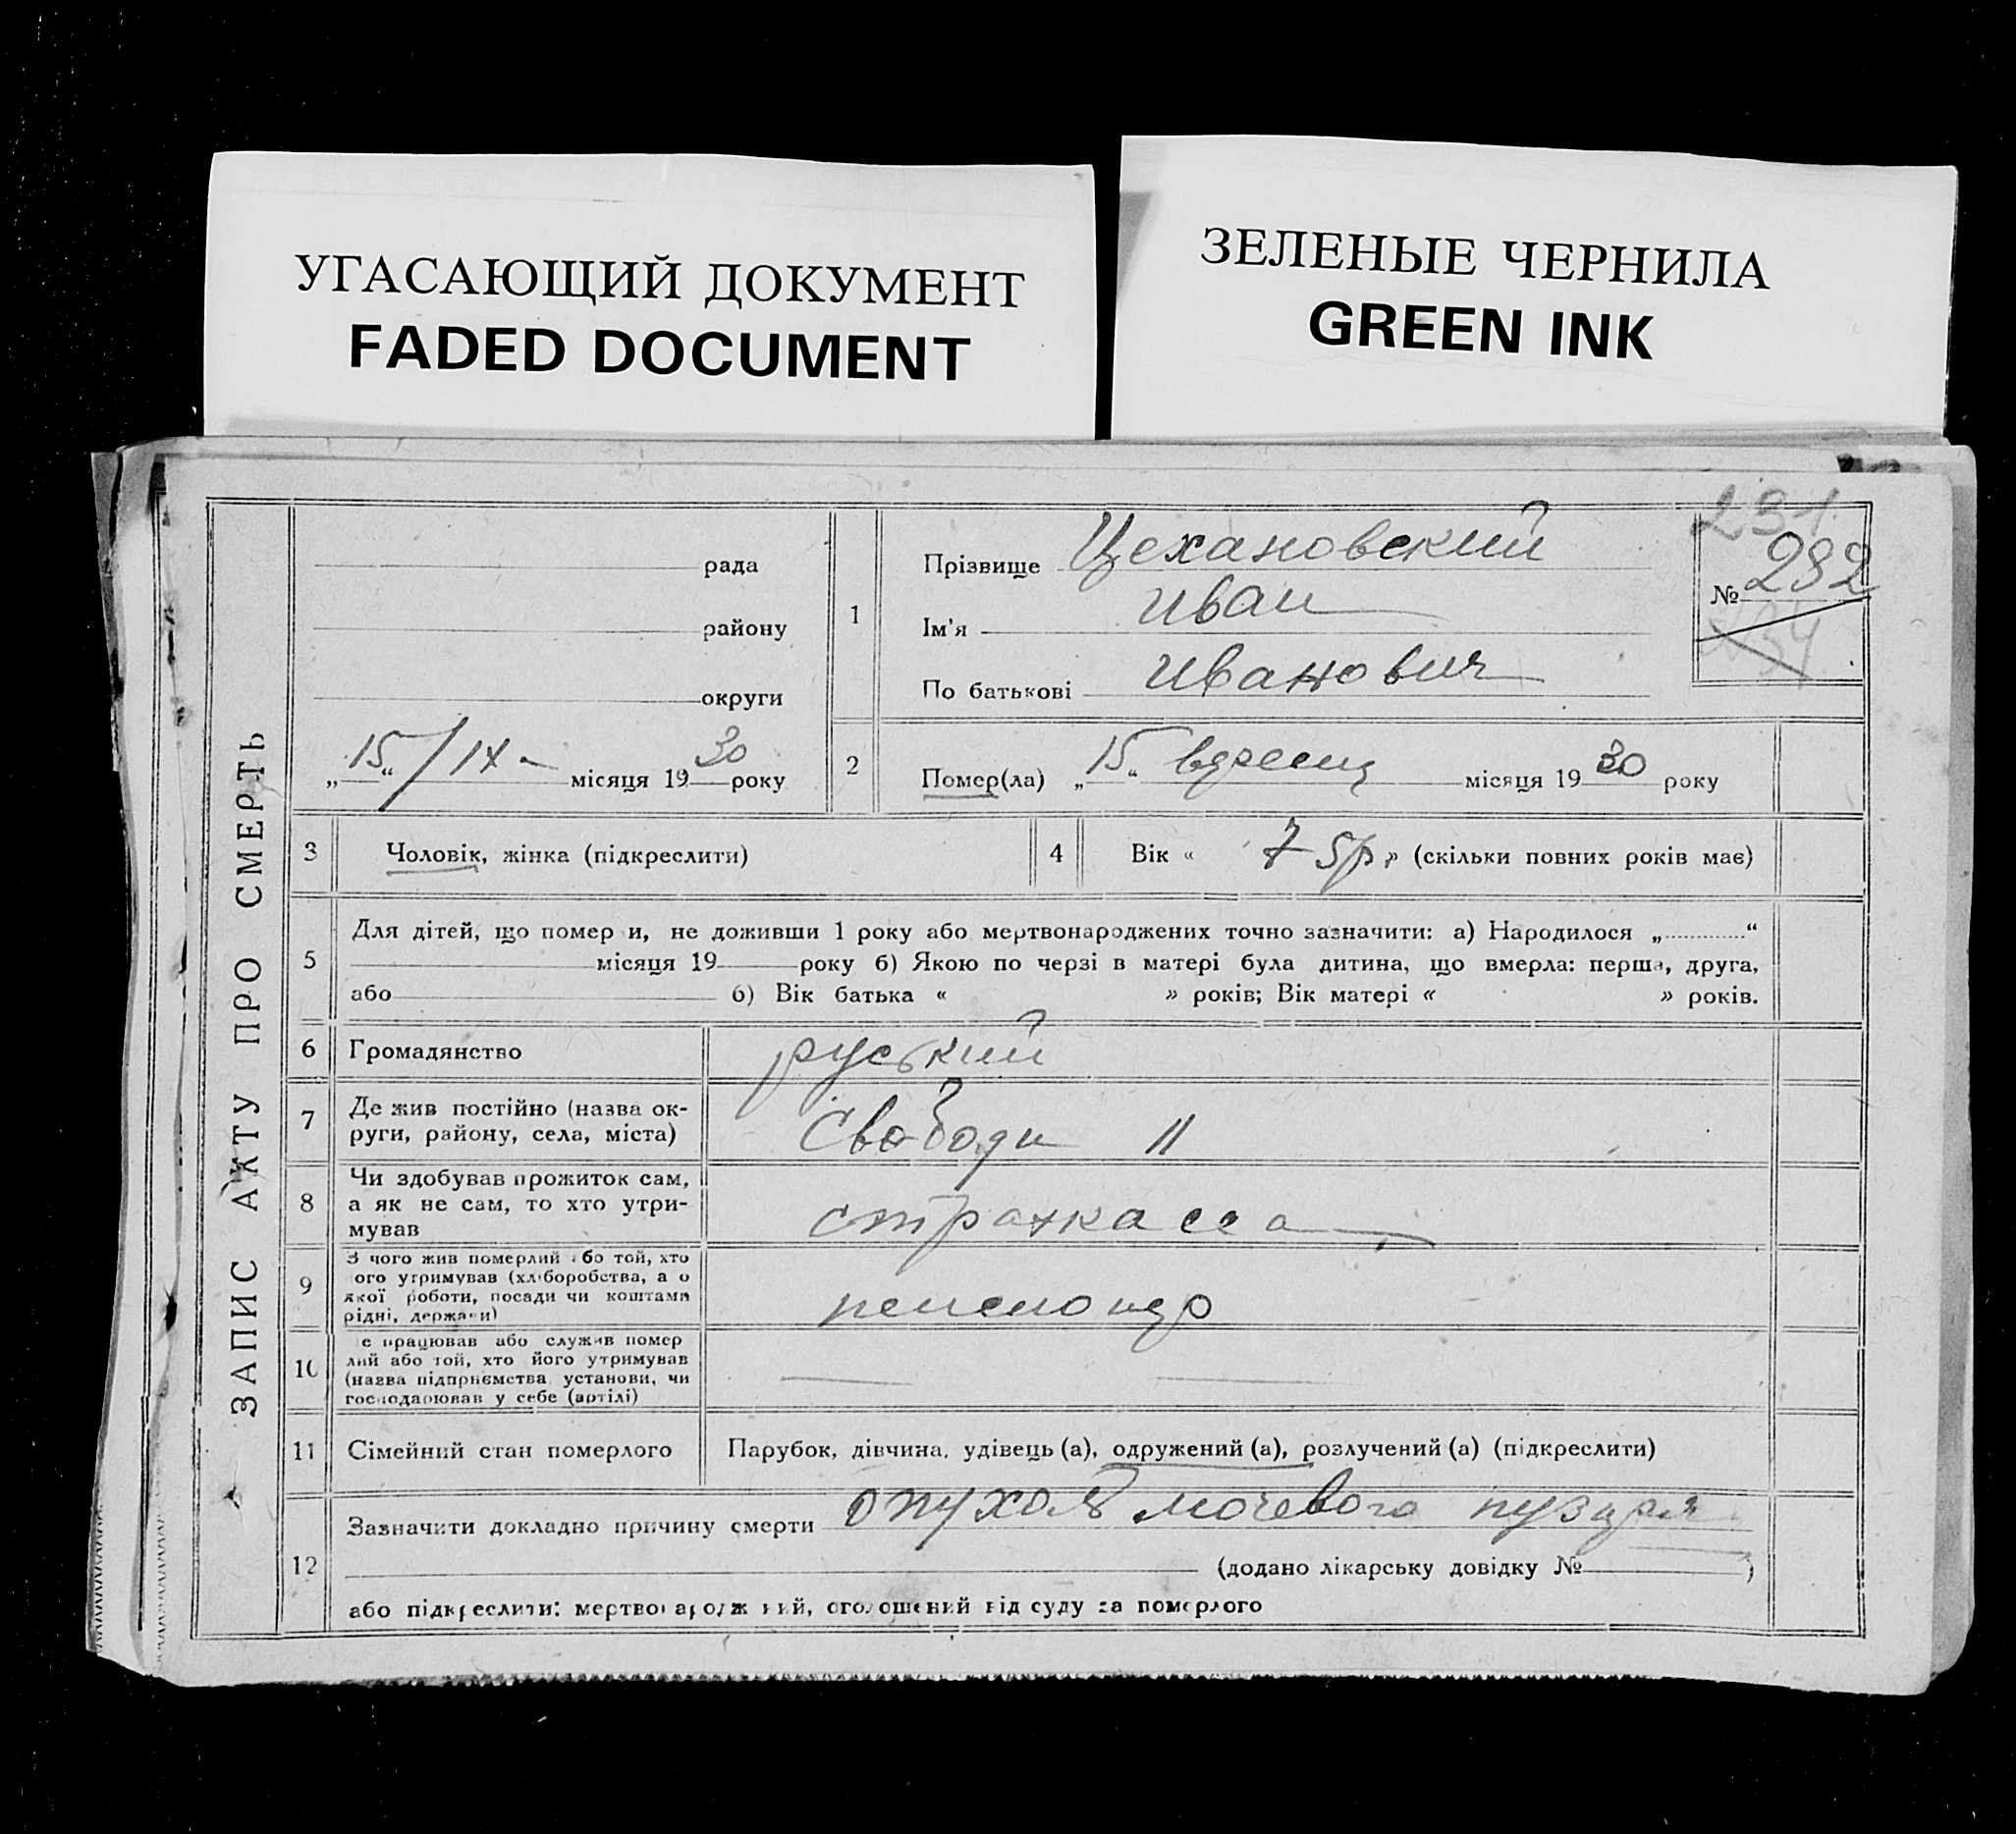 УГАСАЮЩИЙ ДОКУМЕНТ
FADED DOCUMENT
ЗЕЛЕНЫЕ ЧЕРНИЛА
GREEN INK
ЗАПИС АКТУ ПРО СМЕРТЬ
рада
району
округи
„15“/IX - місяця 1930 року
1
Прізвище Цехановский
Ім'я Иван
По батькові Иванович
231
№ 292
234
2
Помер(ла) „15“ вересня місяця 1930 року
3
Чоловік, жінка (підкреслити)
4
Вік « 75 р. » (скільки повних років має)
5
Для дітей, що помер и, не доживши 1 року або мертвонароджених точно зазначити: а) Народилося „ “
місяця 19 року б) Якою по черзі в матері була дитина, що вмерла: перша, друга,
або б) Вік батька « » років; Вік матері « » років.
6
Громадянство руський
7
Де жив постійно (назва ок-
руги, району, села, міста)
Свободи 11
8
Чи здобував прожиток сам,
а як не сам, то хто утри-
мував
страхкасса
9
З чого жив померлий або той, хто
ого утримував (хліборобства, а о
якої роботи, посади чи коштами
рідні, держави)
10
е працював або служив помер
лий або той, хто його утримував
(назва підприємства установи, чи
господарював у себе (артілі)
11
Сімейний стан померлого
Парубок, дівчина, удівець (а), одружений (а), розлучений (а) (підкреслити)
12
Зазначити докладно причину смерти опухоль мочевого пузыря
(додано лікарську довідку № )
або підкреслити: мертвонароджений, оголошений від суду за померлого